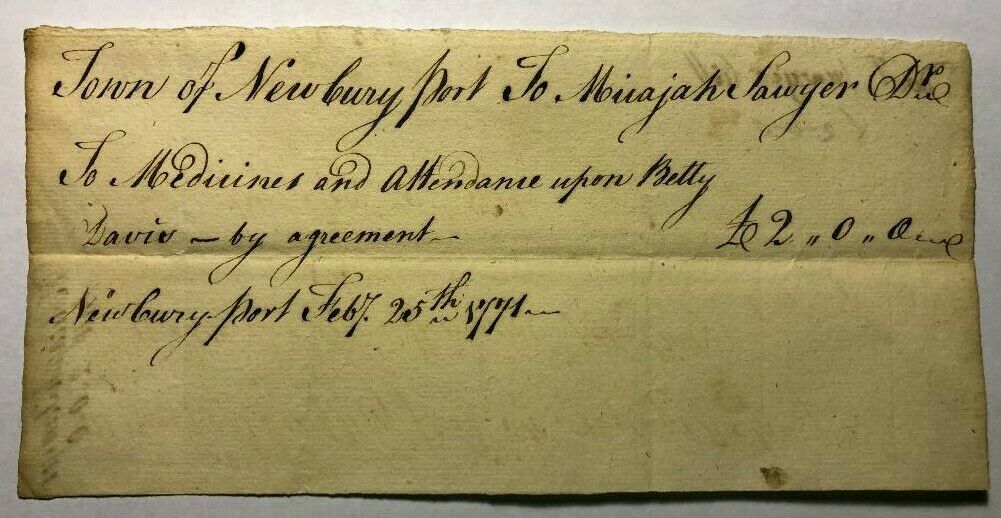 Town of Newbury Port To Micajah Sawyer Dr
To Medicines and Attendance upon Betty
Davis – by agreement – £2 „ 0 „ 0
Newbury Port Feby. 25th 1771 –